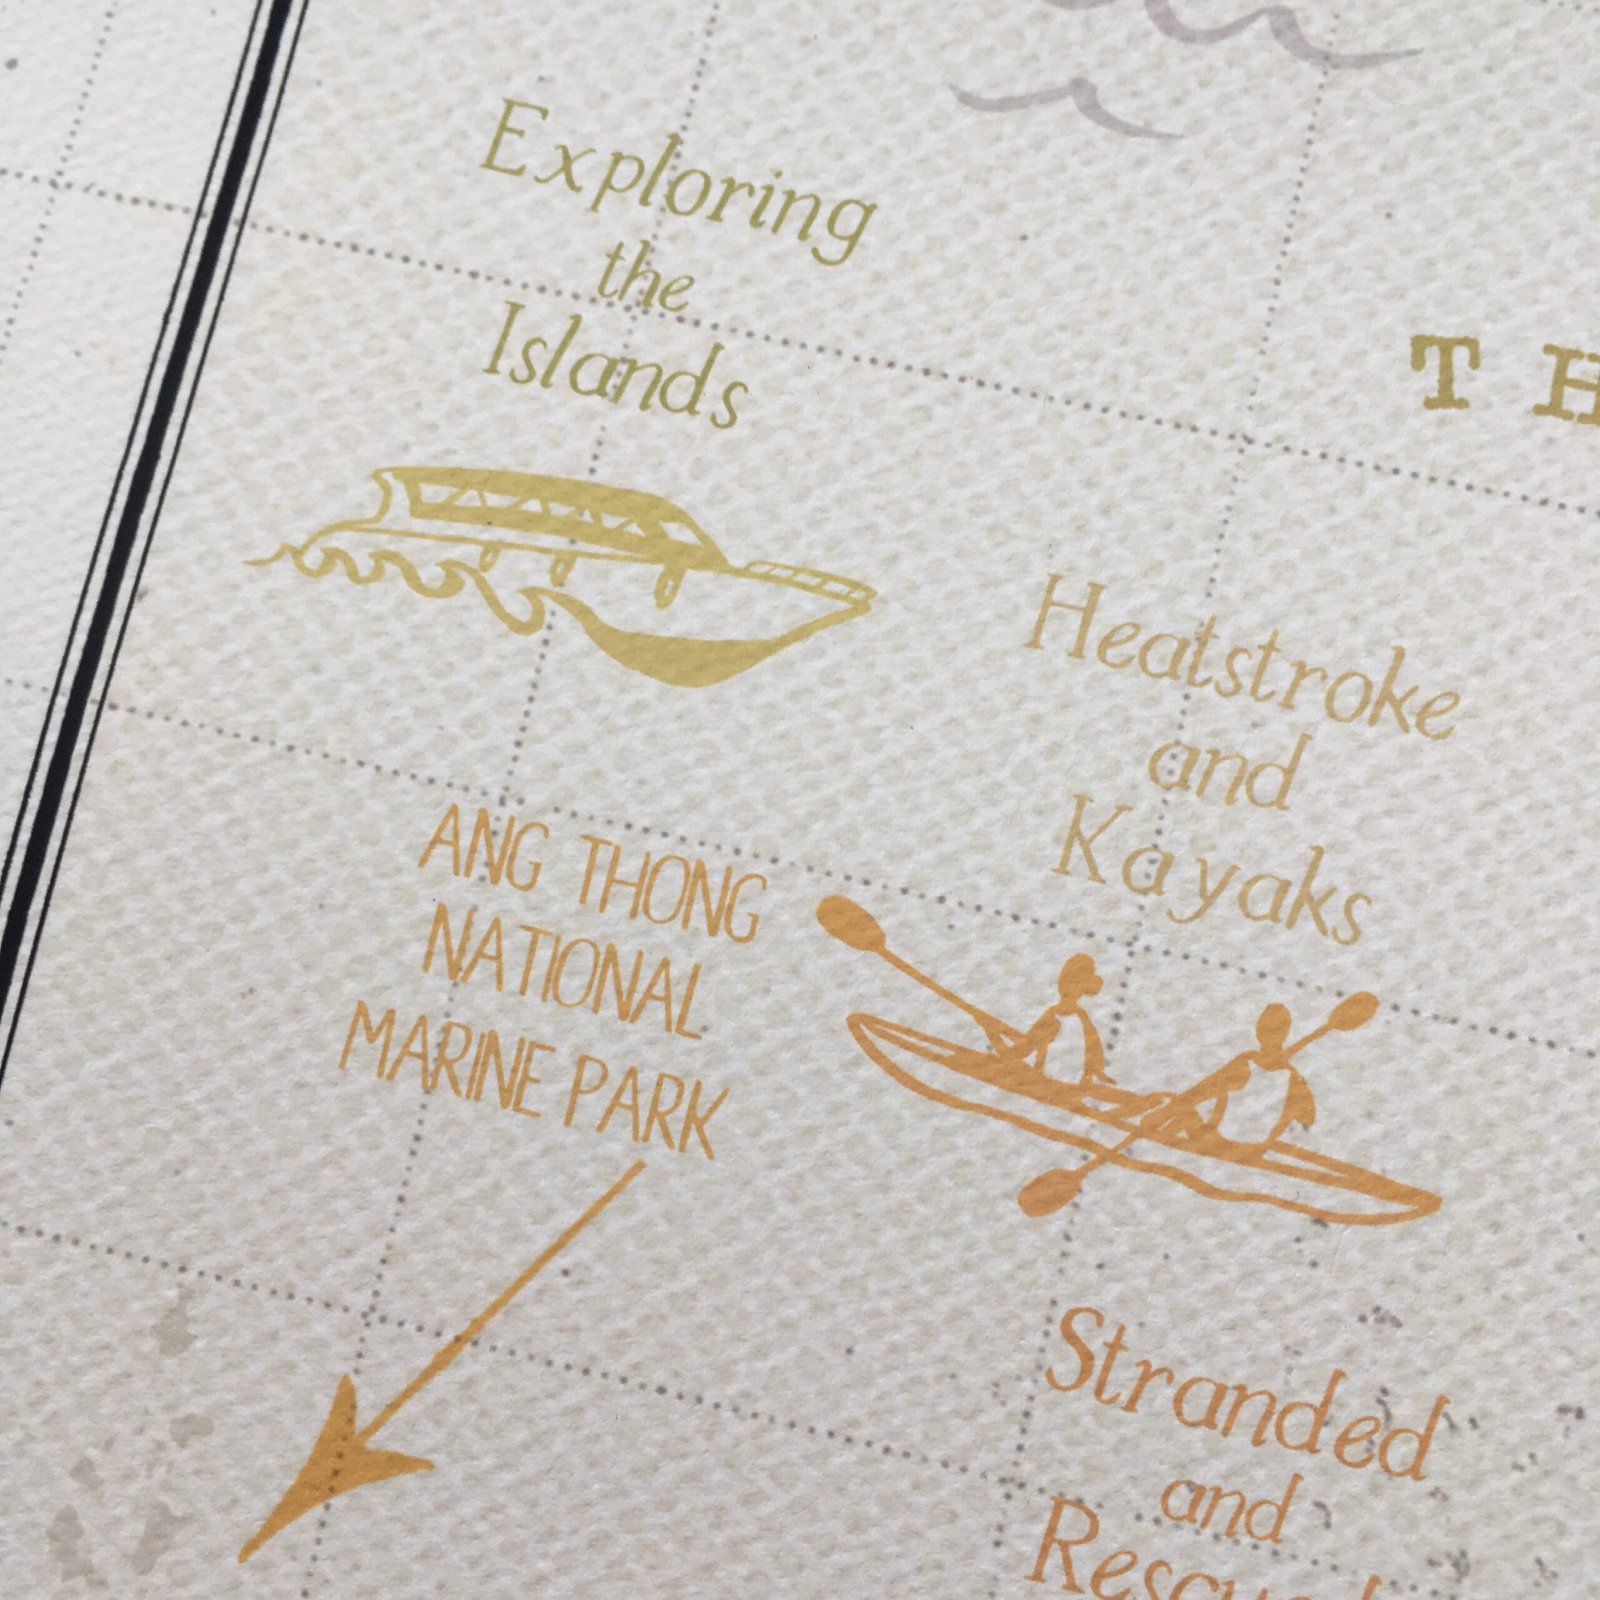 Exploring
the
Islands
T H
Heatstroke
and
Kayaks
ANG THONG
NATIONAL
MARINE PARK
Stranded
and